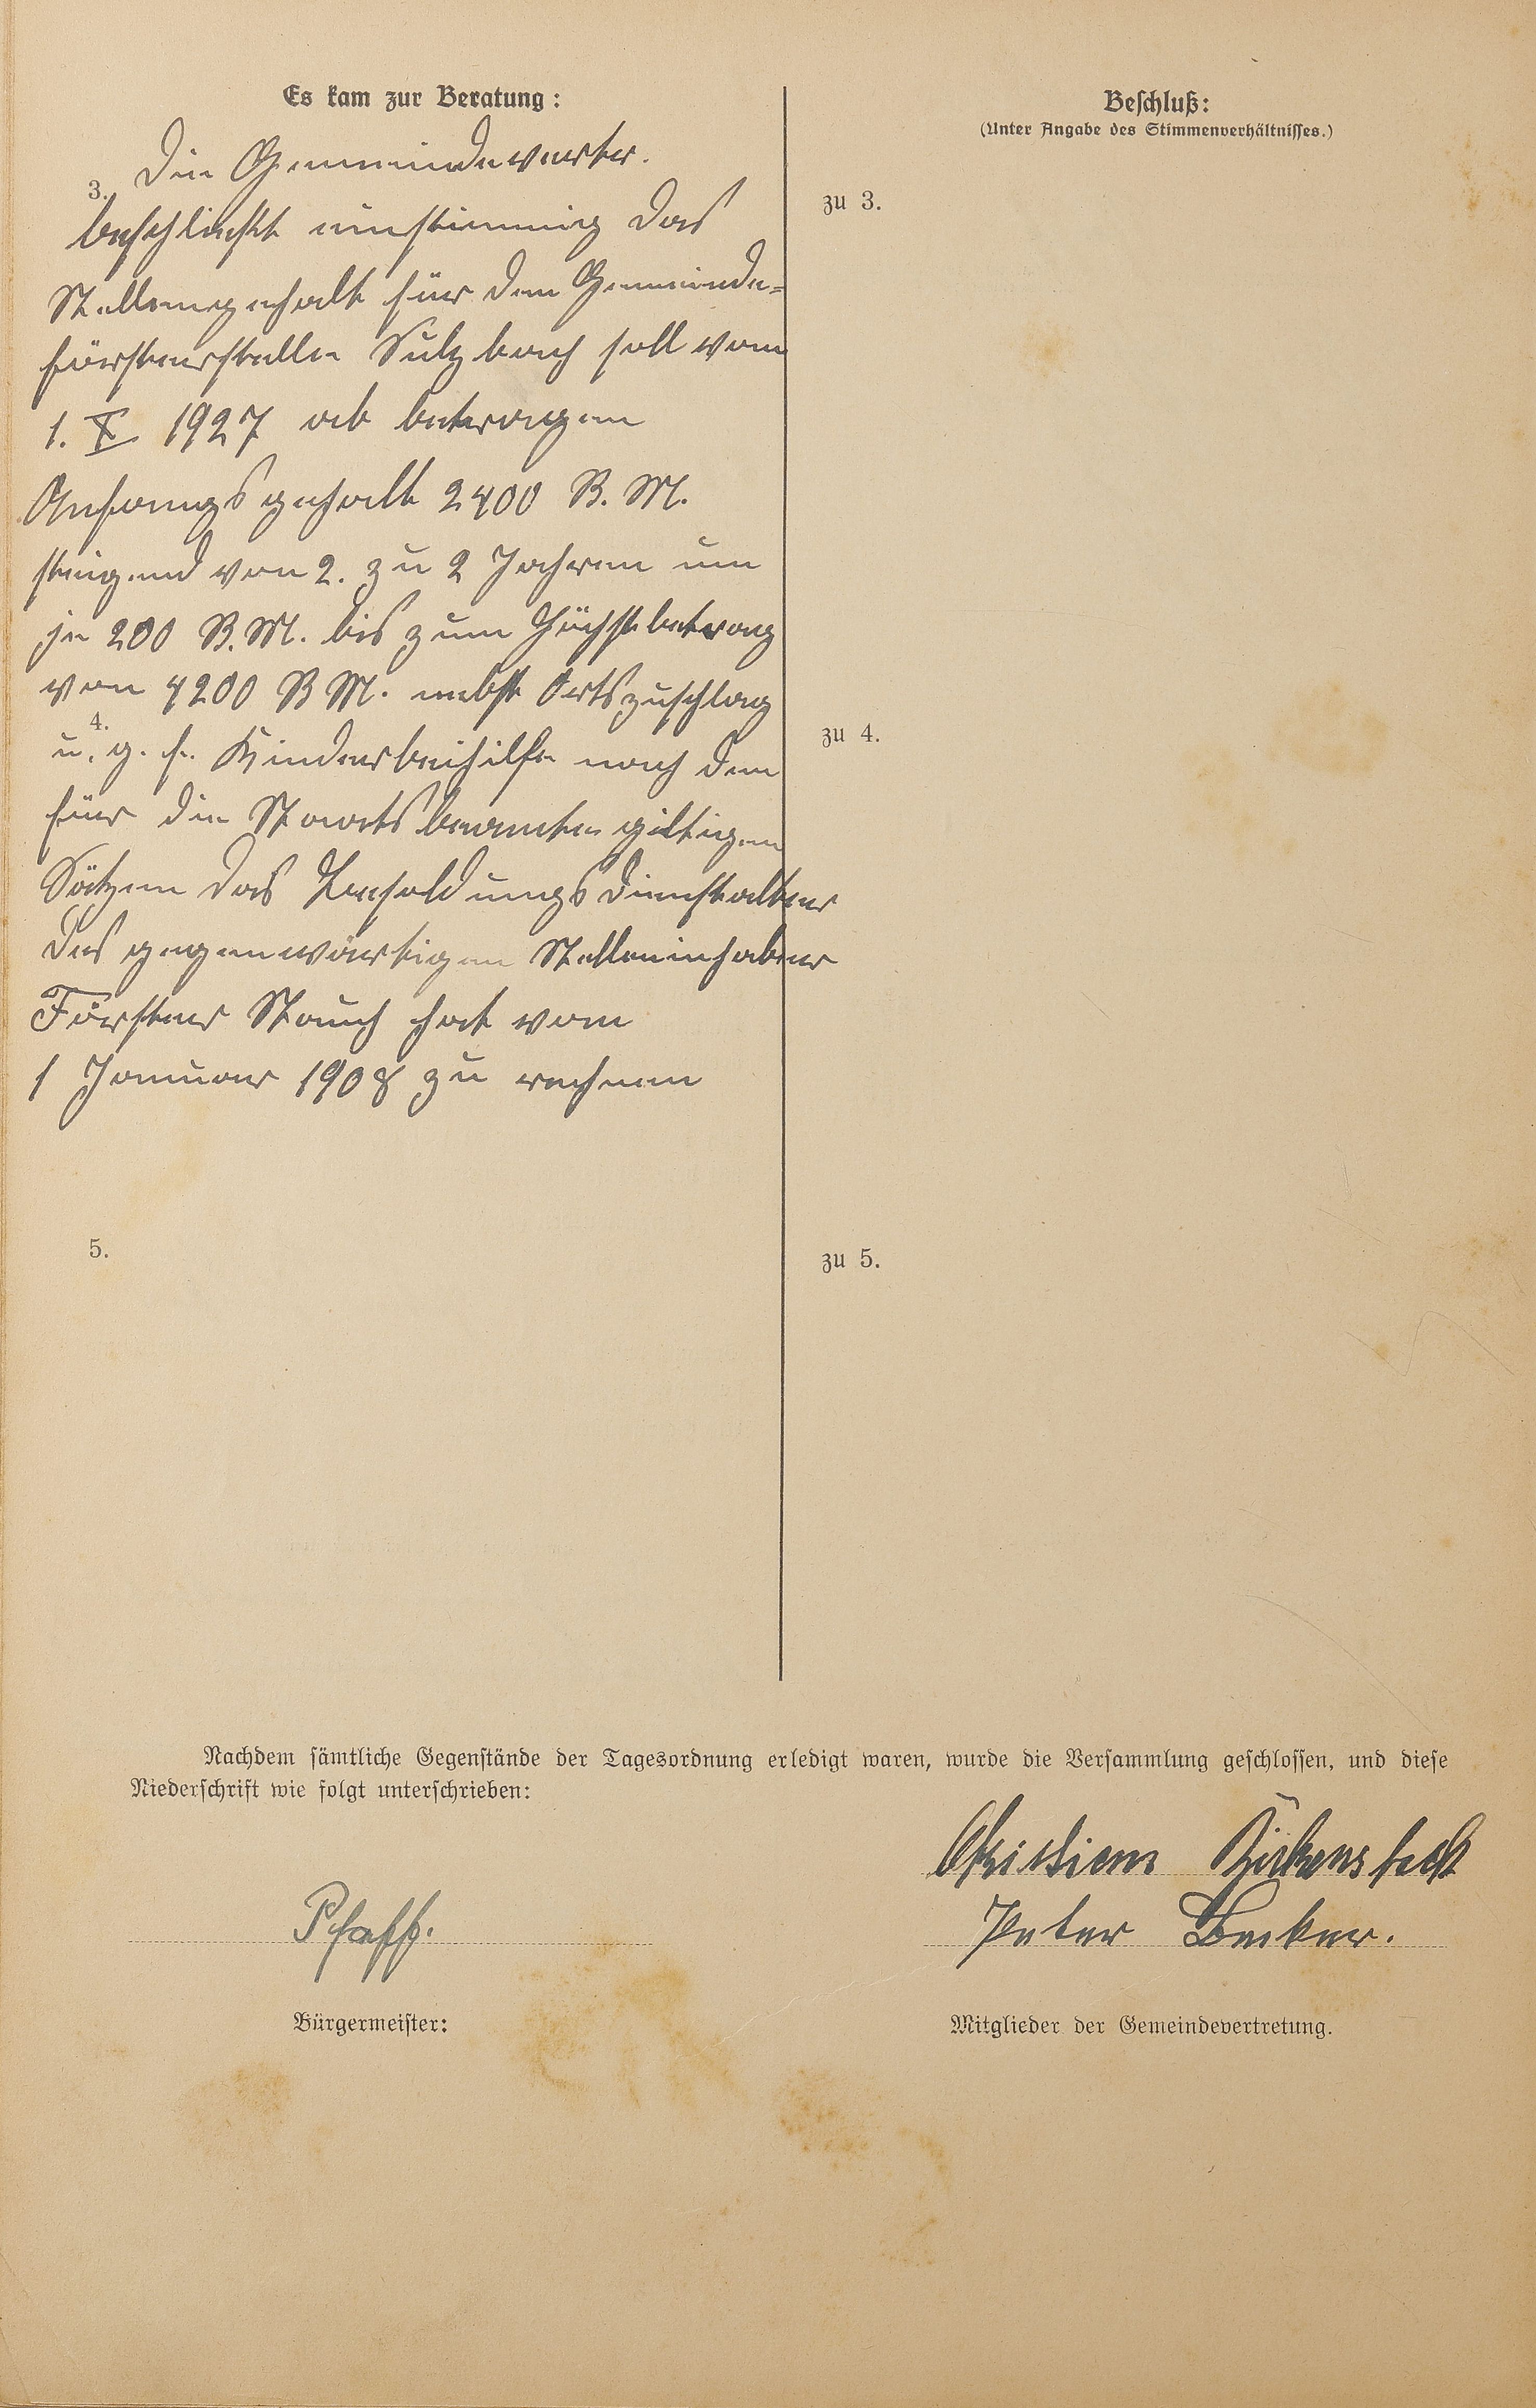 Es kam zur Beratung:
3.
Die Gemeindevertr.
beschließt einstimmig das
Stellengehalt für den Gemeinde-
försterstelle Sulzbach soll vom
1. X 1927 ab betragen
Anfangsgehalt 2400 R.M.
steigend von 2. zu 2 Jahren um
je 200 R.M. bis zum Höchstbetrag
von 4200 R M. nebst Ortszuschlag
4.
u. g. f. Kinderbeihilfe nach den
für die Staatsbeamten giltigen
Sätzen das Besoldungsdienstalter
des gegenwärtigen Stelleninhaber
Förster Stauch hat vom
1 Januar 1908 zu rechnen
5.
Beschluß:
(Unter Angabe des Stimmenverhältnisses.)
zu 3.
zu 4.
zu 5.
Nachdem sämtliche Gegenstände der Tagesordnung erledigt waren, wurde die Versammlung geschlossen, und diese
Niederschrift wie folgt unterschrieben:
Pfaff.
Bürgermeister:
Christian Birkenstock
Peter Becker.
Mitglieder der Gemeindevertretung.